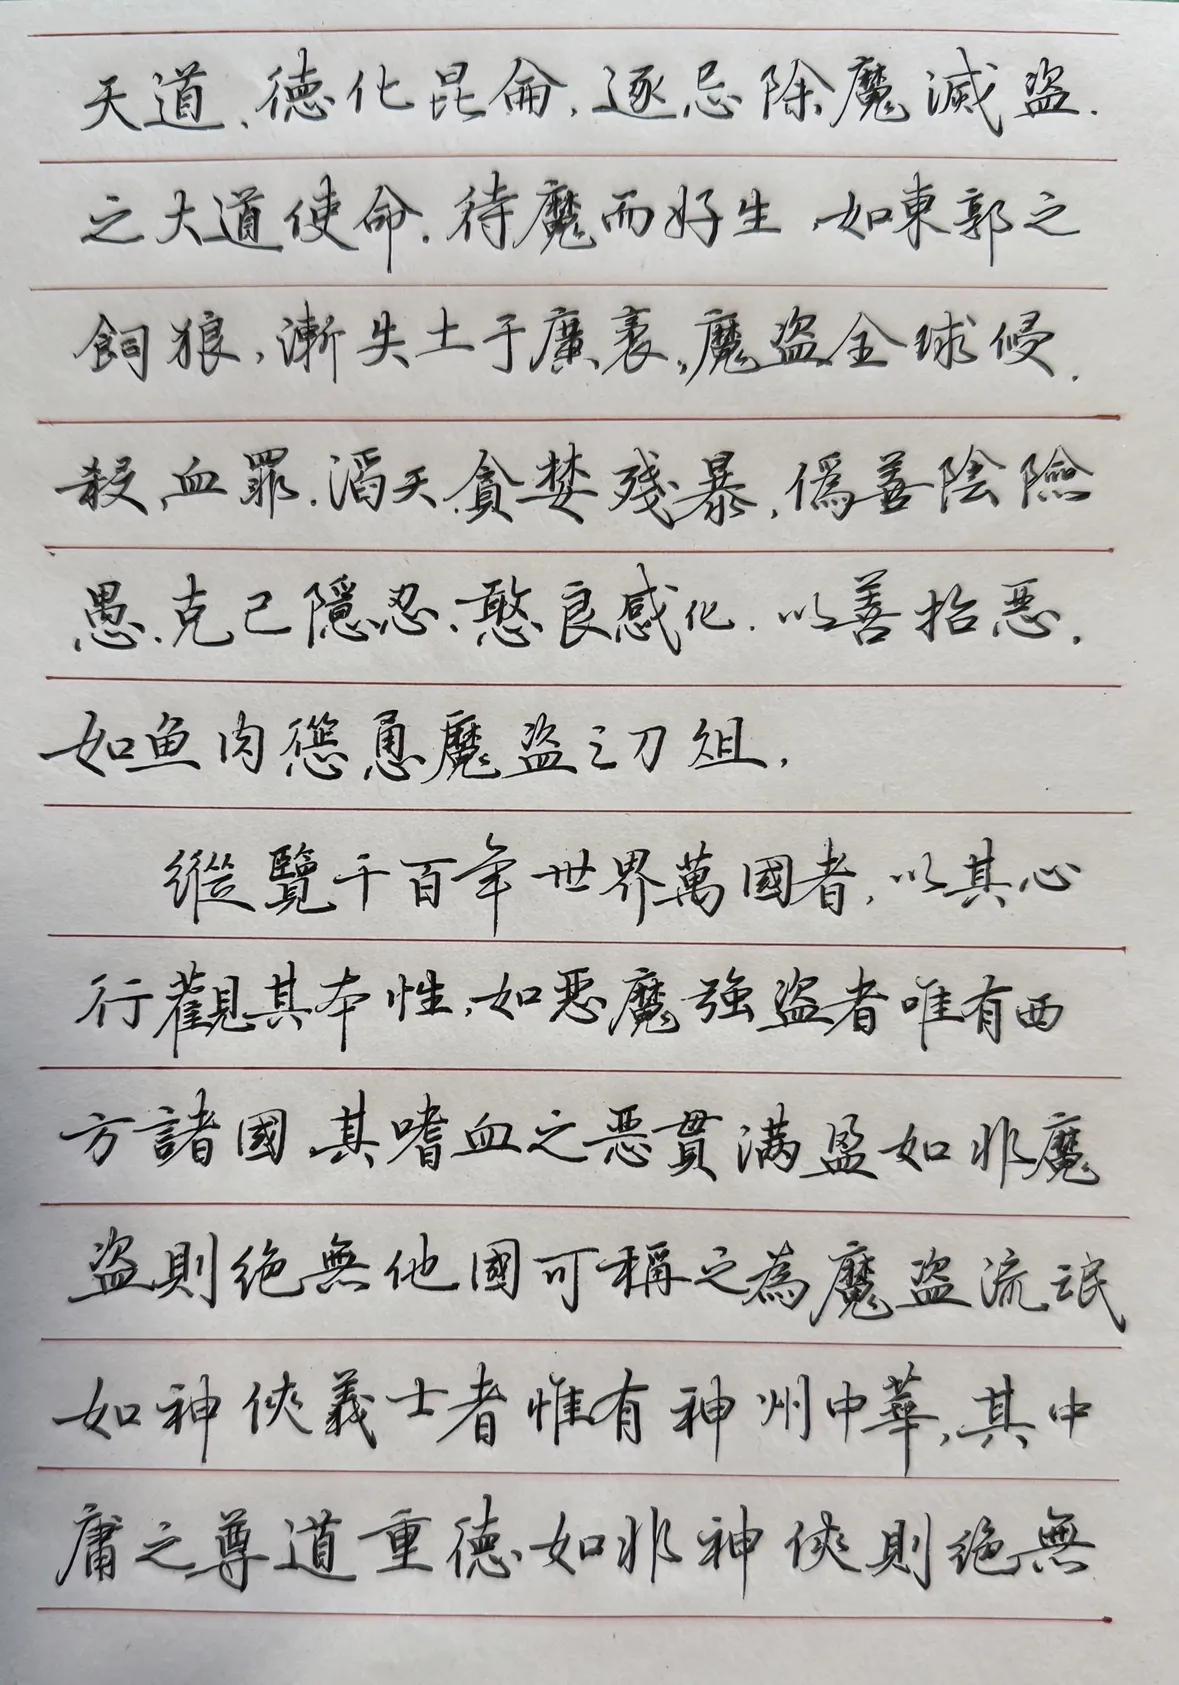 天道、德化昆侖，逐忌除魔滅盜．
之大道使命．待魔而好生，如東郭之
飼狼，漸失土于廣袤，魔盜全球侵．
殺，血罪．滔天，貪婪殘暴，偽善陰險
愚．克己隱忍、憨良感化．以善招惡．
如鱼肉慫恿魔盜之刀俎．
縱覽千百年世界萬國者，以其心
行觀其本性，如惡魔強盜者唯有西
方諸國，其嗜血之惡貫滿盈如非魔
盜則絶無他國可稱之為魔盜流氓
如神俠義士者惟有神州中華，其中
庸之尊道重德．如非神俠則絶無